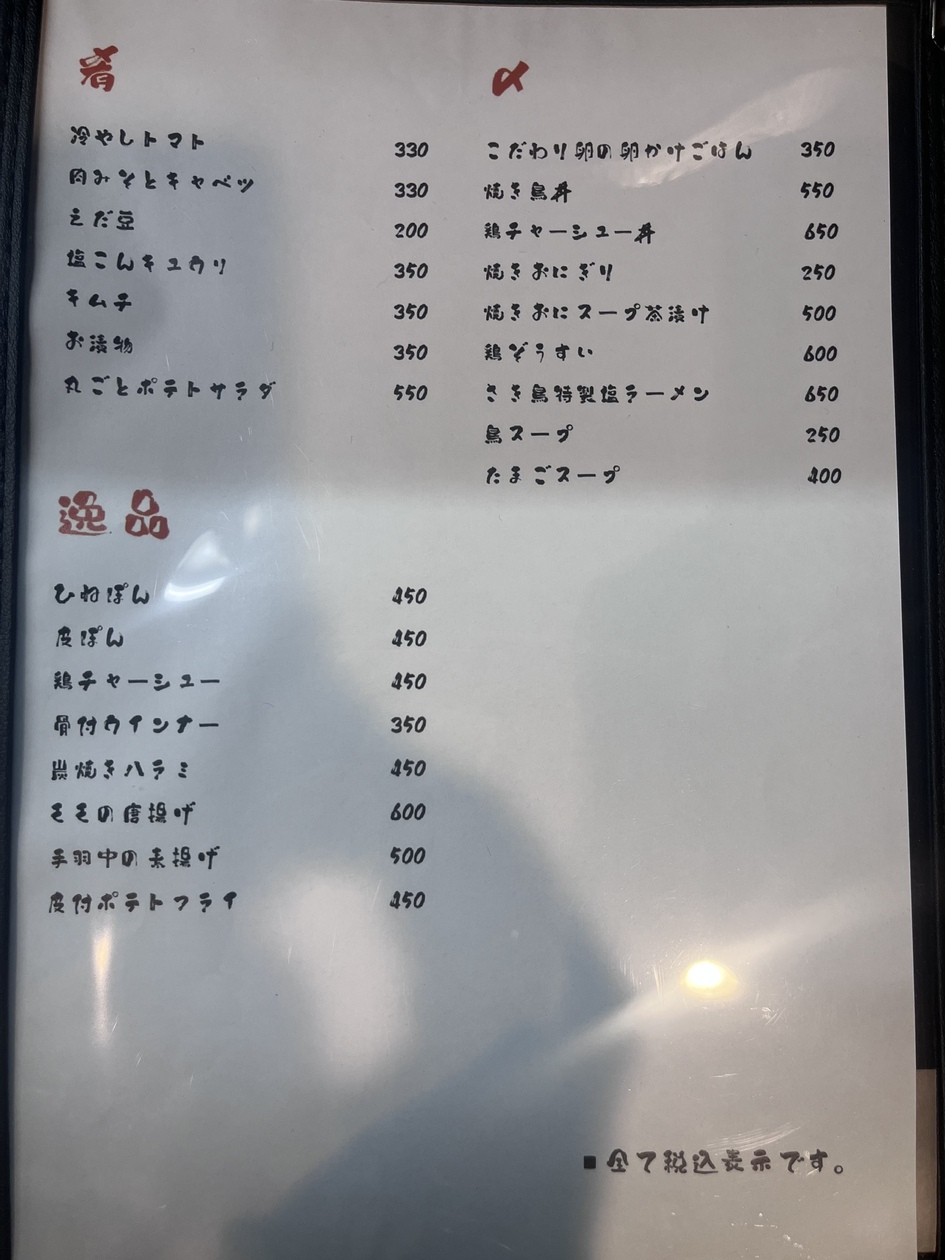 肴
冷やしトマト 330
肉みそとキャベツ 330
えだ豆 200
塩こんキュウリ 350
キムチ 350
お漬物 350
丸ごとポテトサラダ 550
逸品
ひねぽん 450
皮ぽん 450
鶏チャーシュー 450
骨付ウインナー 350
炭焼きハラミ 450
モモの唐揚げ 600
手羽中の素揚げ 500
皮付ポテトフライ 450
〆
こだわり卵の卵かけごはん 350
焼き鳥丼 550
鶏チャーシュー丼 650
焼きおにぎり 250
焼きおにスープ茶漬け 500
鶏ぞうすい 600
さき鳥特製塩ラーメン 650
鳥スープ 250
たまごスープ 400
■全て税込表示です。